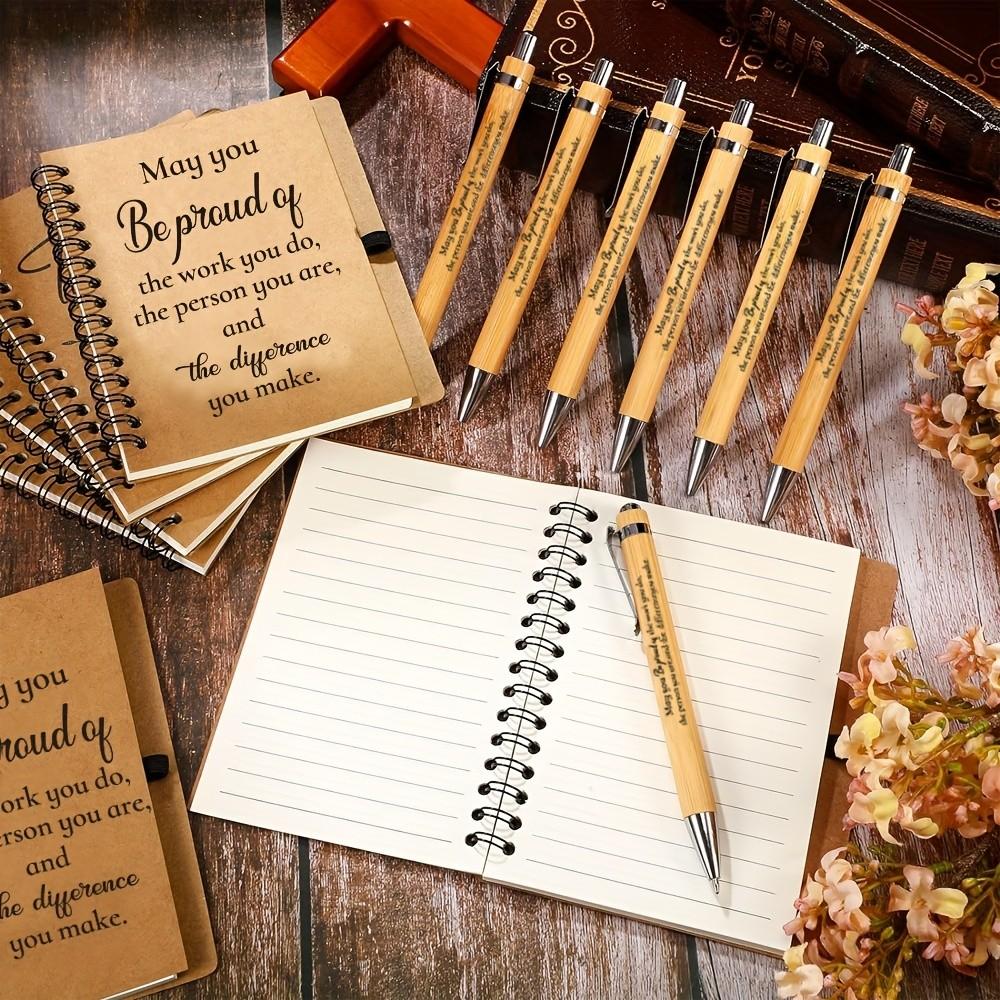 May you
Be proud of
the work you do,
the person you are,
and
the difference
you make.
y you
roud of
ork you do,
erson you are,
and
he difference
you make.
May you Be proud of the work you do,
the person you are and the difference you make
May you Be proud of the work you do,
the person you are and the difference you make
May you Be proud of the work you do,
the person you are and the difference you make
May you Be proud of the work you do,
the person you are and the difference you make
May you Be proud of the work you do,
the person you are and the difference you make
May you Be proud of the work you do,
the person you are and the difference you make
May you Be proud of the work you do,
the person you are and the difference you make